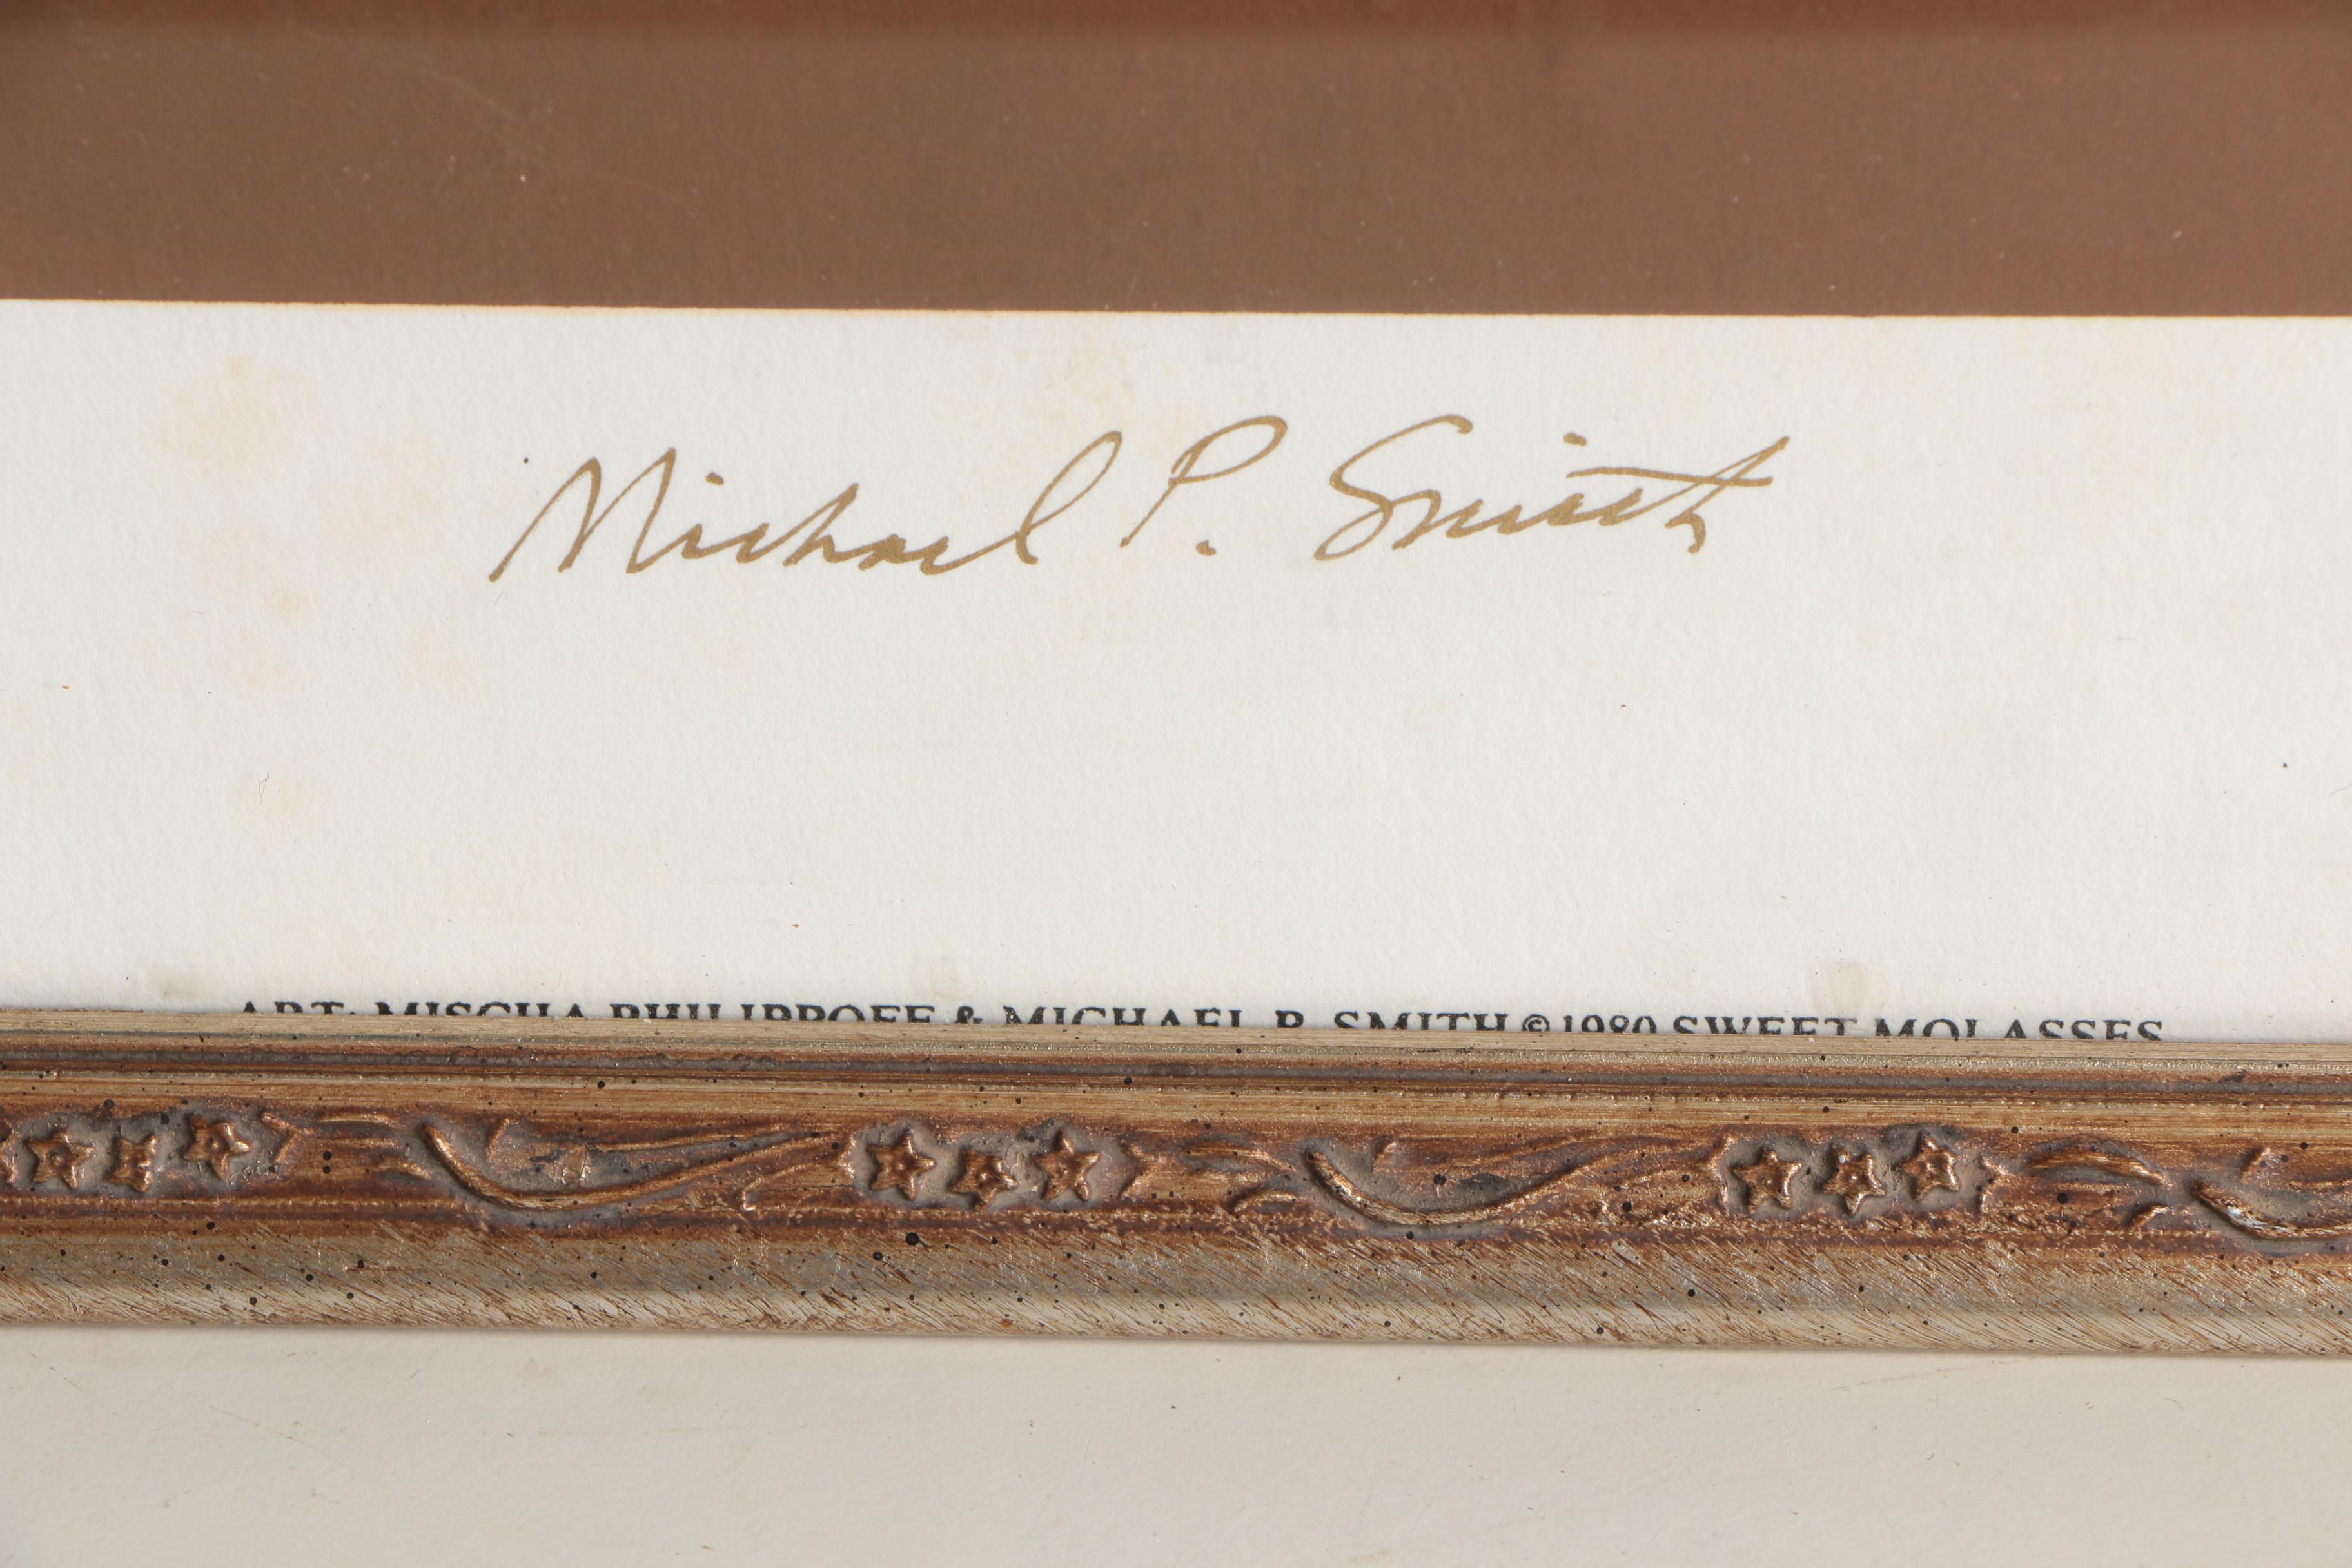 Michael P. Smith
ART: MISCHA PHILIPPOFF & MICHAEL P. SMITH © 1980 SWEET MOLASSES